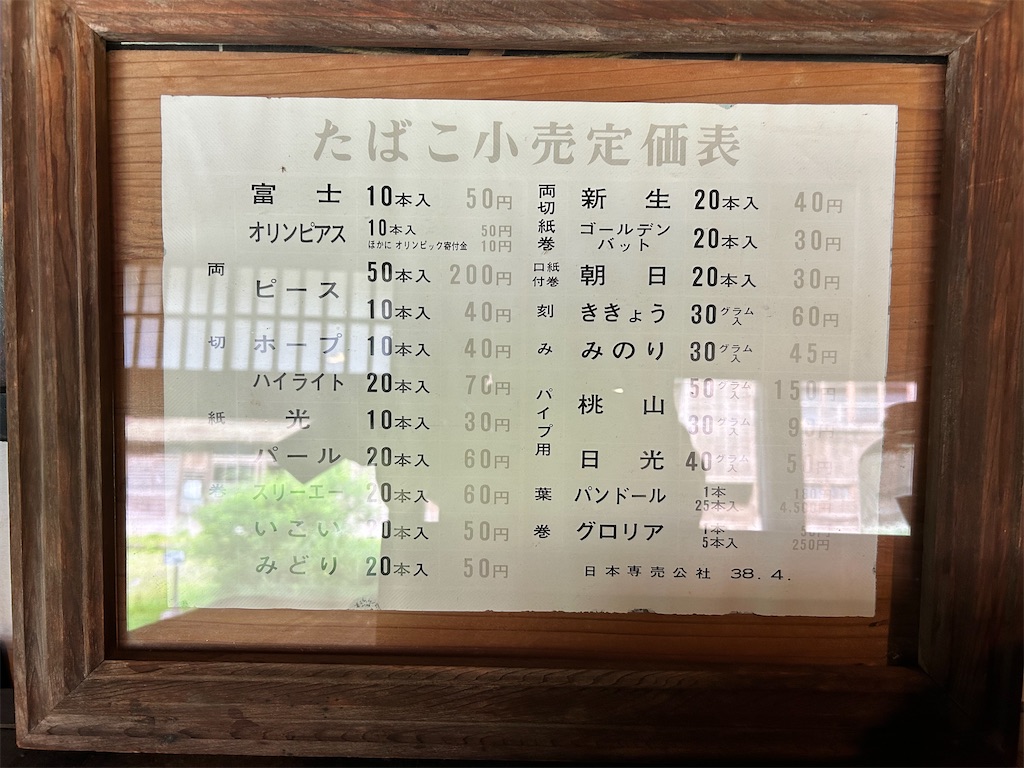 たばこ小売定価表
両切紙巻
富士 10本入 50円
オリンピアス 10本入 50円
ほかに オリンピック寄付金 10円
ピース 50本入 200円
10本入 40円
ホープ 10本入 40円
ハイライト 20本入 70円
光 10本入 30円
パール 20本入 60円
スリーエー 20本入 60円
いこい 20本入 50円
みどり 20本入 50円
両切紙巻
新生 20本入 40円
ゴールデンバット 20本入 30円
口付紙巻 朝日 20本入 30円
刻み
ききょう 30グラム入 60円
みのり 30グラム入 45円
パイプ用
桃山 50グラム入 150円
30グラム入
日光 40グラム入
葉巻
パンドール 1本
25本入
グロリア 1本
5本入 250円
日本専売公社 38.4.